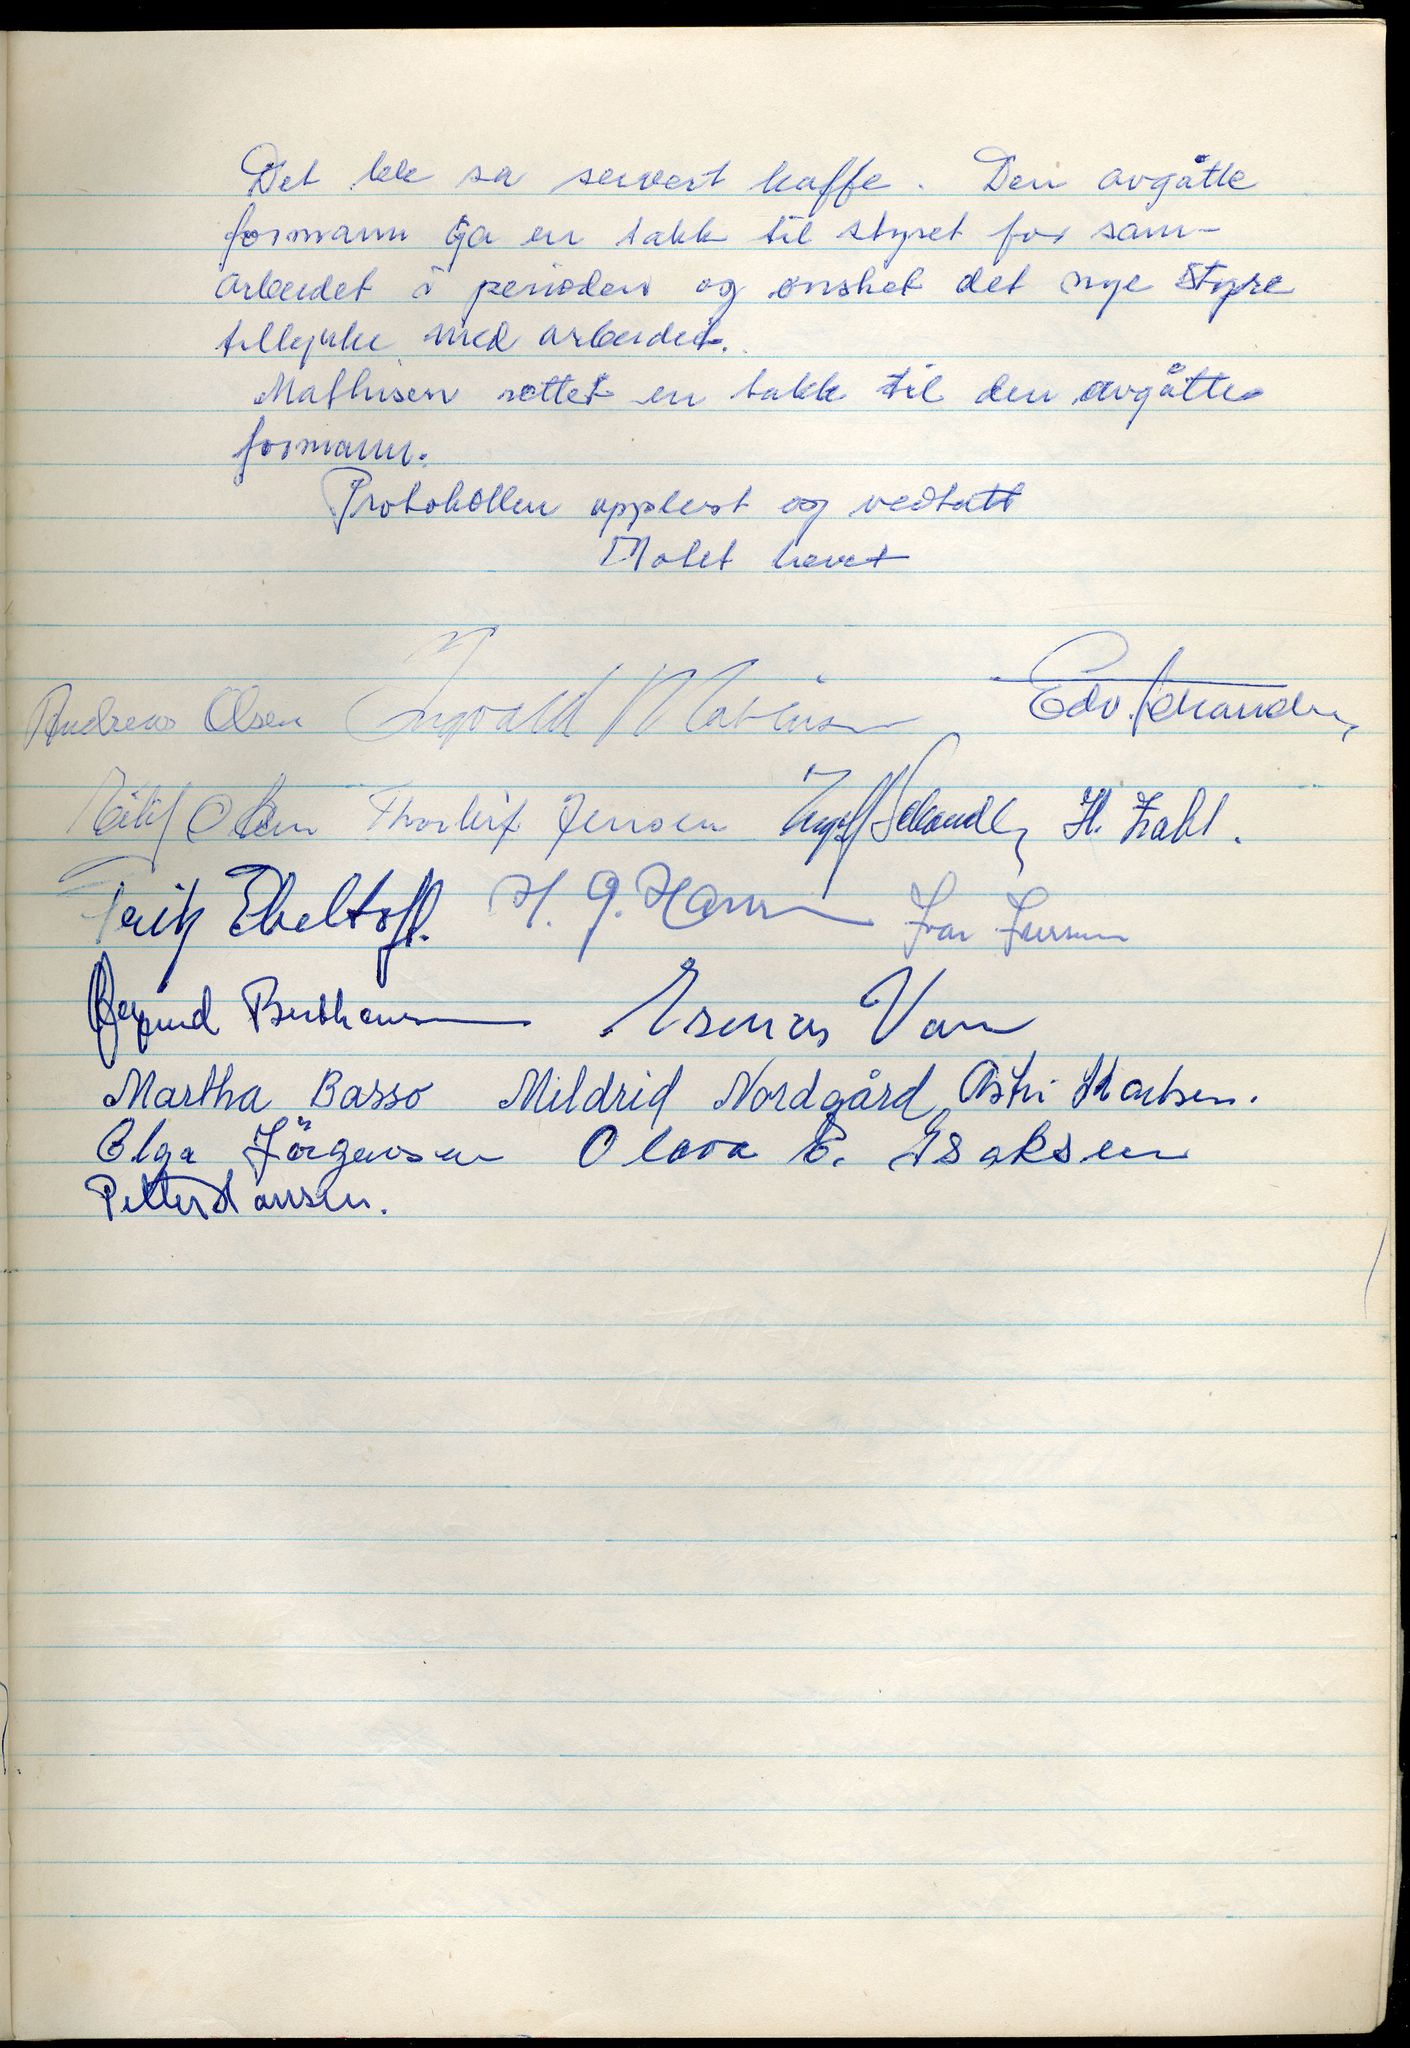 Det ble så servert kaffe. Den avgåtte
formann ga en takk til styret for sam-
arbeidet i perioden og ønsket det nye styre
tillykke med arbeidet.
Mathisen rettet en takk til den avgåtte
formann.
Protokollen opplest og vedtatt
Møtet hevet
Andreas Olsen Ingvald Mathisen Edv.
Eilif Olsen Thorleif Jensen H. Zahl.
Fritz Ebeltoft. H. J. Hansen Ivar Iversen
Bertheussen
Martha Basso Mildrid Nordgård Astri
Olga Jörgensen Olava E. Isaksen
Petter Hansen.